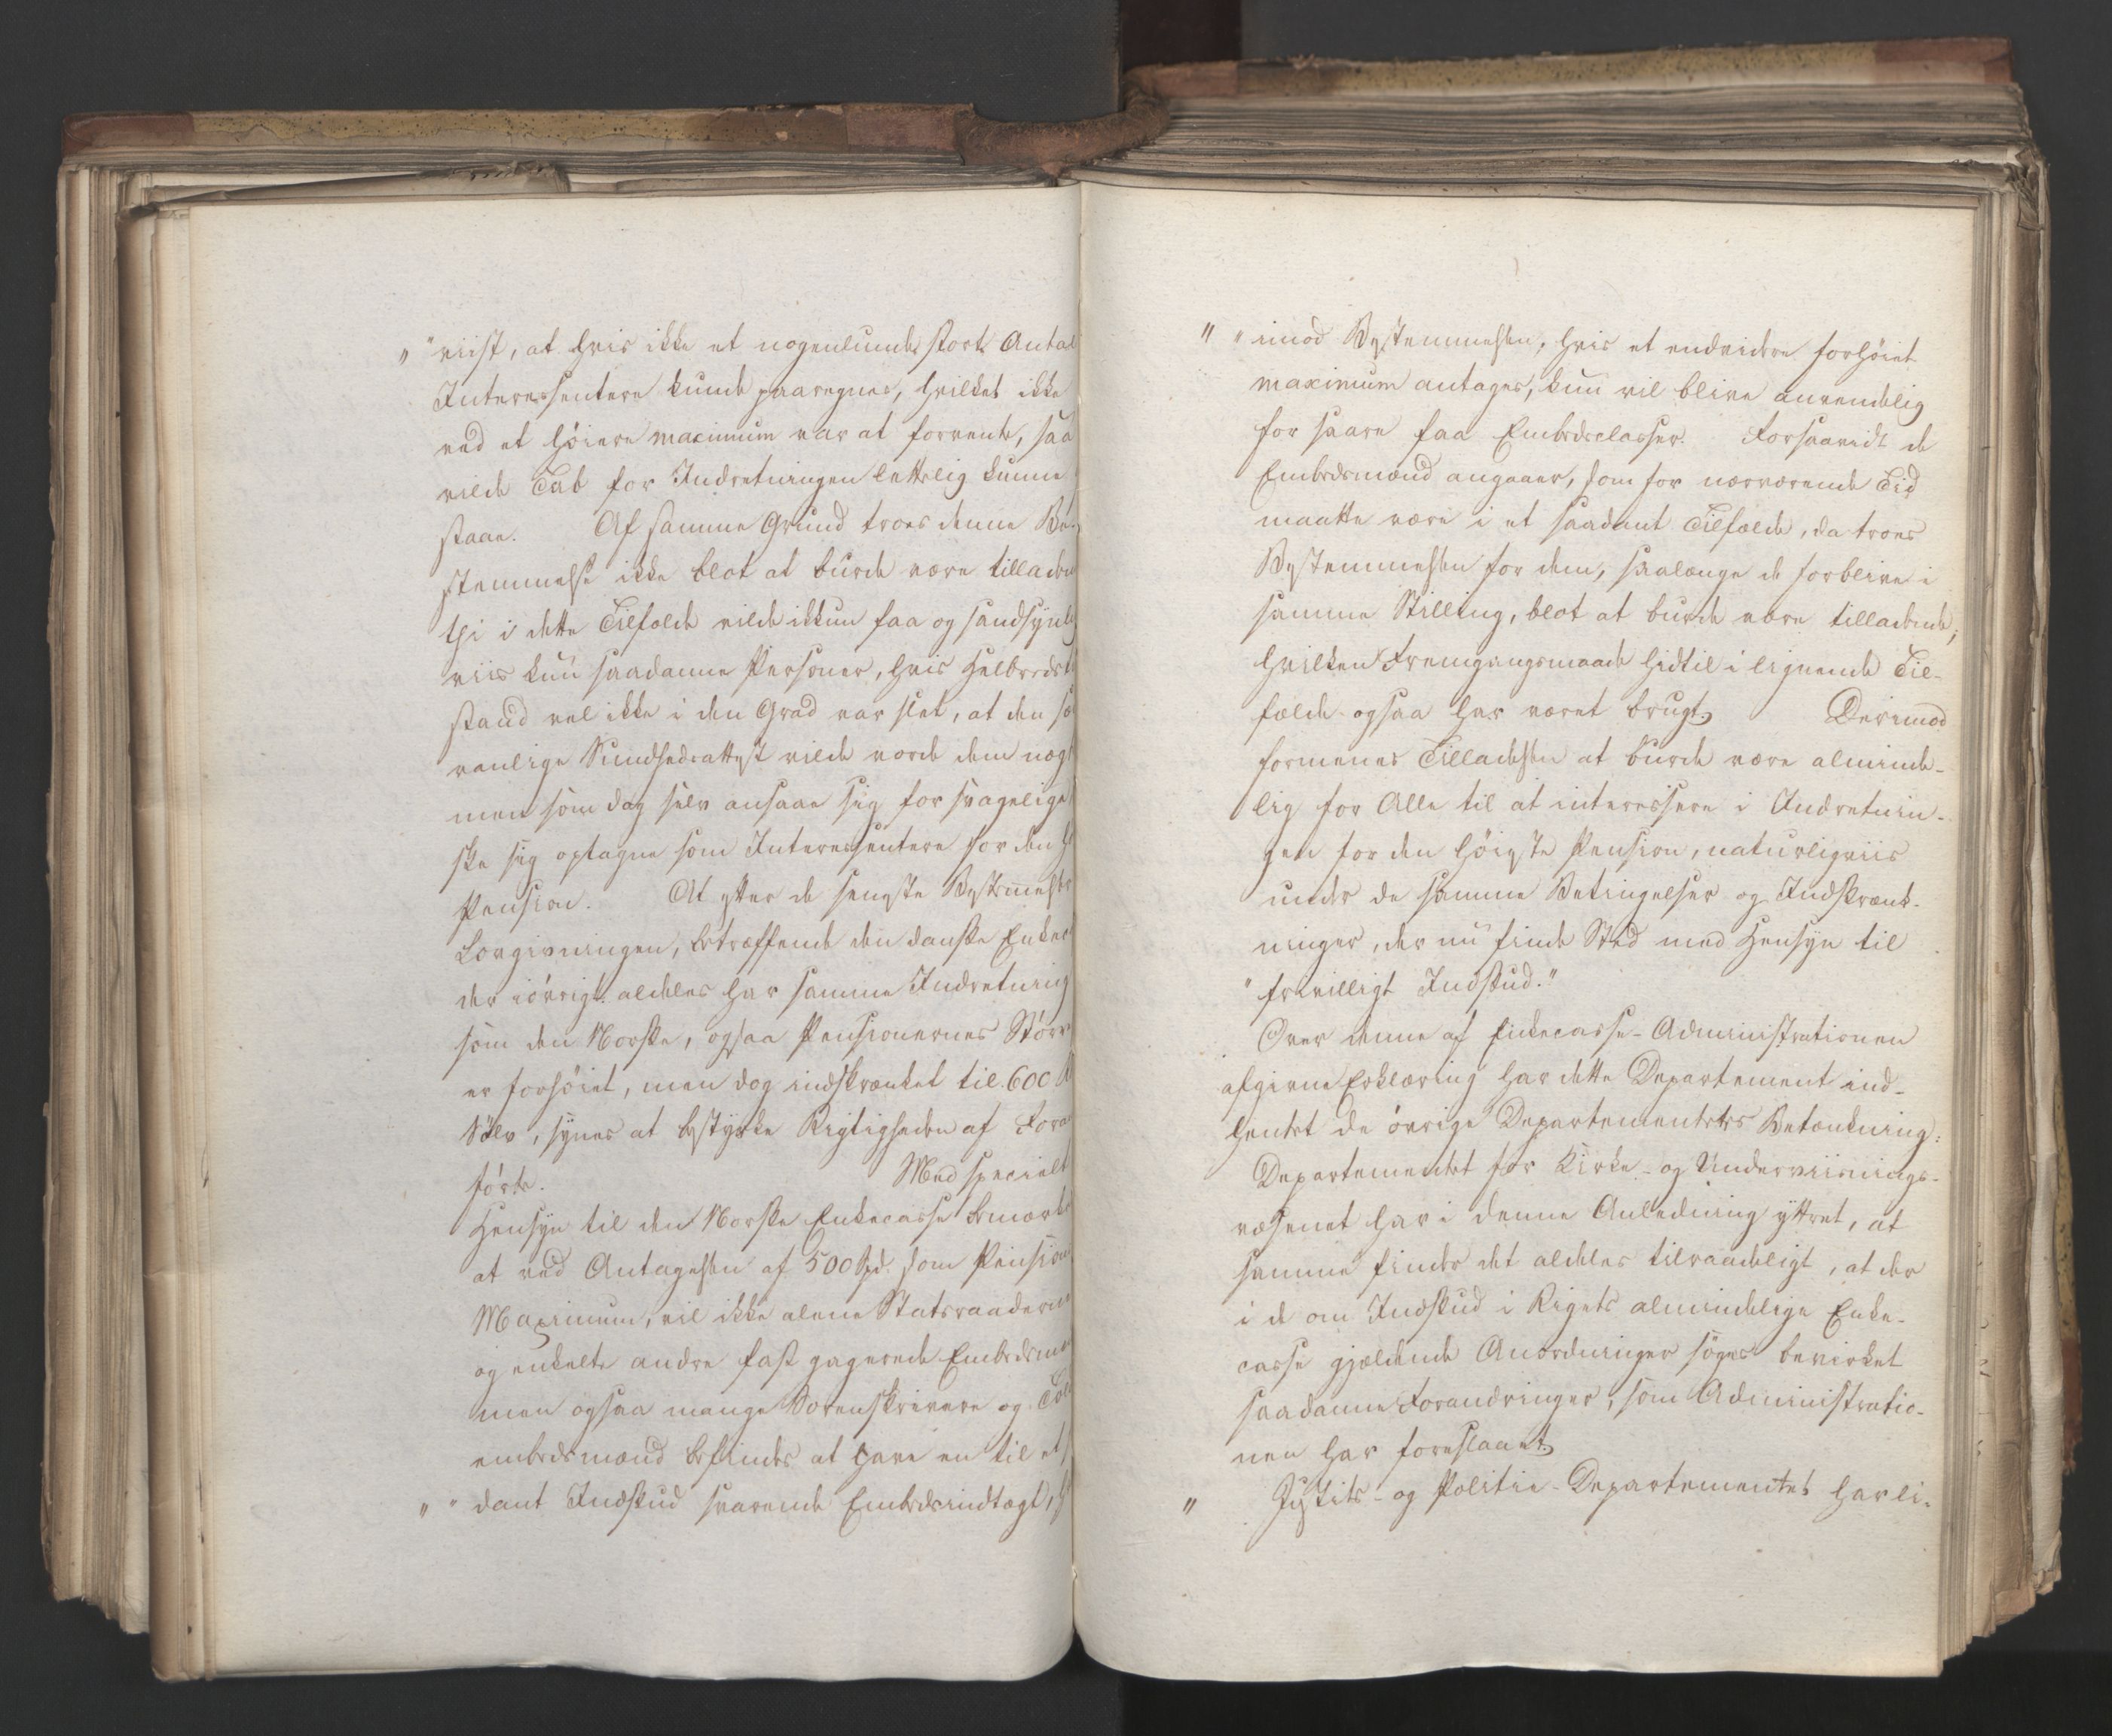 " "viist, at hvis ikke et nogenlunde stort Antal
Interessentere kunde paaregnes, hvilket ikke
ved et høiere maximum var at forvente, saa
vilde Tab for Indretningen lettelig kunne
staae. Af samme Grund troes denne Be-
stemmelse ikke blot at burde være tilladen
thi i dette Tilfælde vilde ikkun faa og sandsynlig
viis kun saadanne Personer, hvis Helbredst
stand vel ikke i den Grad var slet, at den sæ
vanlige Sundhedsattest vilde vorde dem nægt
men som dog selv ansaae sig for svagelige
ske sig optagne som Interessentere for den h
Pension. At efter de seneste Bestemmelser
Lovgivningen, betræffende den danske Enkec
der iøvrigt aldeles har samme Indretning
som den Norske, ogsaa Pensionernes Større
er forhøiet, men dog indskrænket til 600 R
Sølv, synes at bestyrke Rigtigheden af Fora
førte. Med specielt
Hensyn til den Norske Enkecasse bemærkes
at ved Antagelsen af 500 Spd. som Pensions
Maximum, vil ikke alene Statsraaderne
og enkelte andre fast gagerede Embedsmæ
men ogsaa mange Sorenskrivere og Told
embedsmænd befindes at have en til et
" " dant Indskud svarende Embedsindtægt, h
" " imod Bestemmelsen, hvis et endvidere forhøiet
maximum antages, kun vil blive anvendelig
for saare faa Embedsclasser. Forsaavidt de
Embedsmænd angaaer, som for nærværende Tid
maatte være i et saadant Tilfælde, da troes
Bestemmelsen for dem, saalænge de forblive i
samme Stilling, blot at burde være tilladende;
hvilken Fremgangsmaade hidtil i lignende Til-
fælde ogsaa har været brugt. Derimod
formenes Tilladelsen at burde være alminde-
lig for Alle til at interessere i Indretnin-
gen for den høieste Pension, naturligviis
under de samme Betingelser og Indskrænk-
ninger, der nu finde Sted med Hensyn til
" frivilligt Indskud."
Over denne af Enkecasse-Administrationen
afgivne Erklæring har dette Departement ind-
hentet de øvrige Departementets Betænkning:
Departementet for Kirke- og Underviisnings-
væsenet har i denne Anledning yttret, at
samme finder det aldeles tilraadeligt, at der
i de om Indskud i Rigets almindelige Enke-
casse gjældende Anordninger søges bevirket
saadanne Forandringer, som Administratio-
nen har foreslaaet.
" Justits- og Politie-Departementet har li-